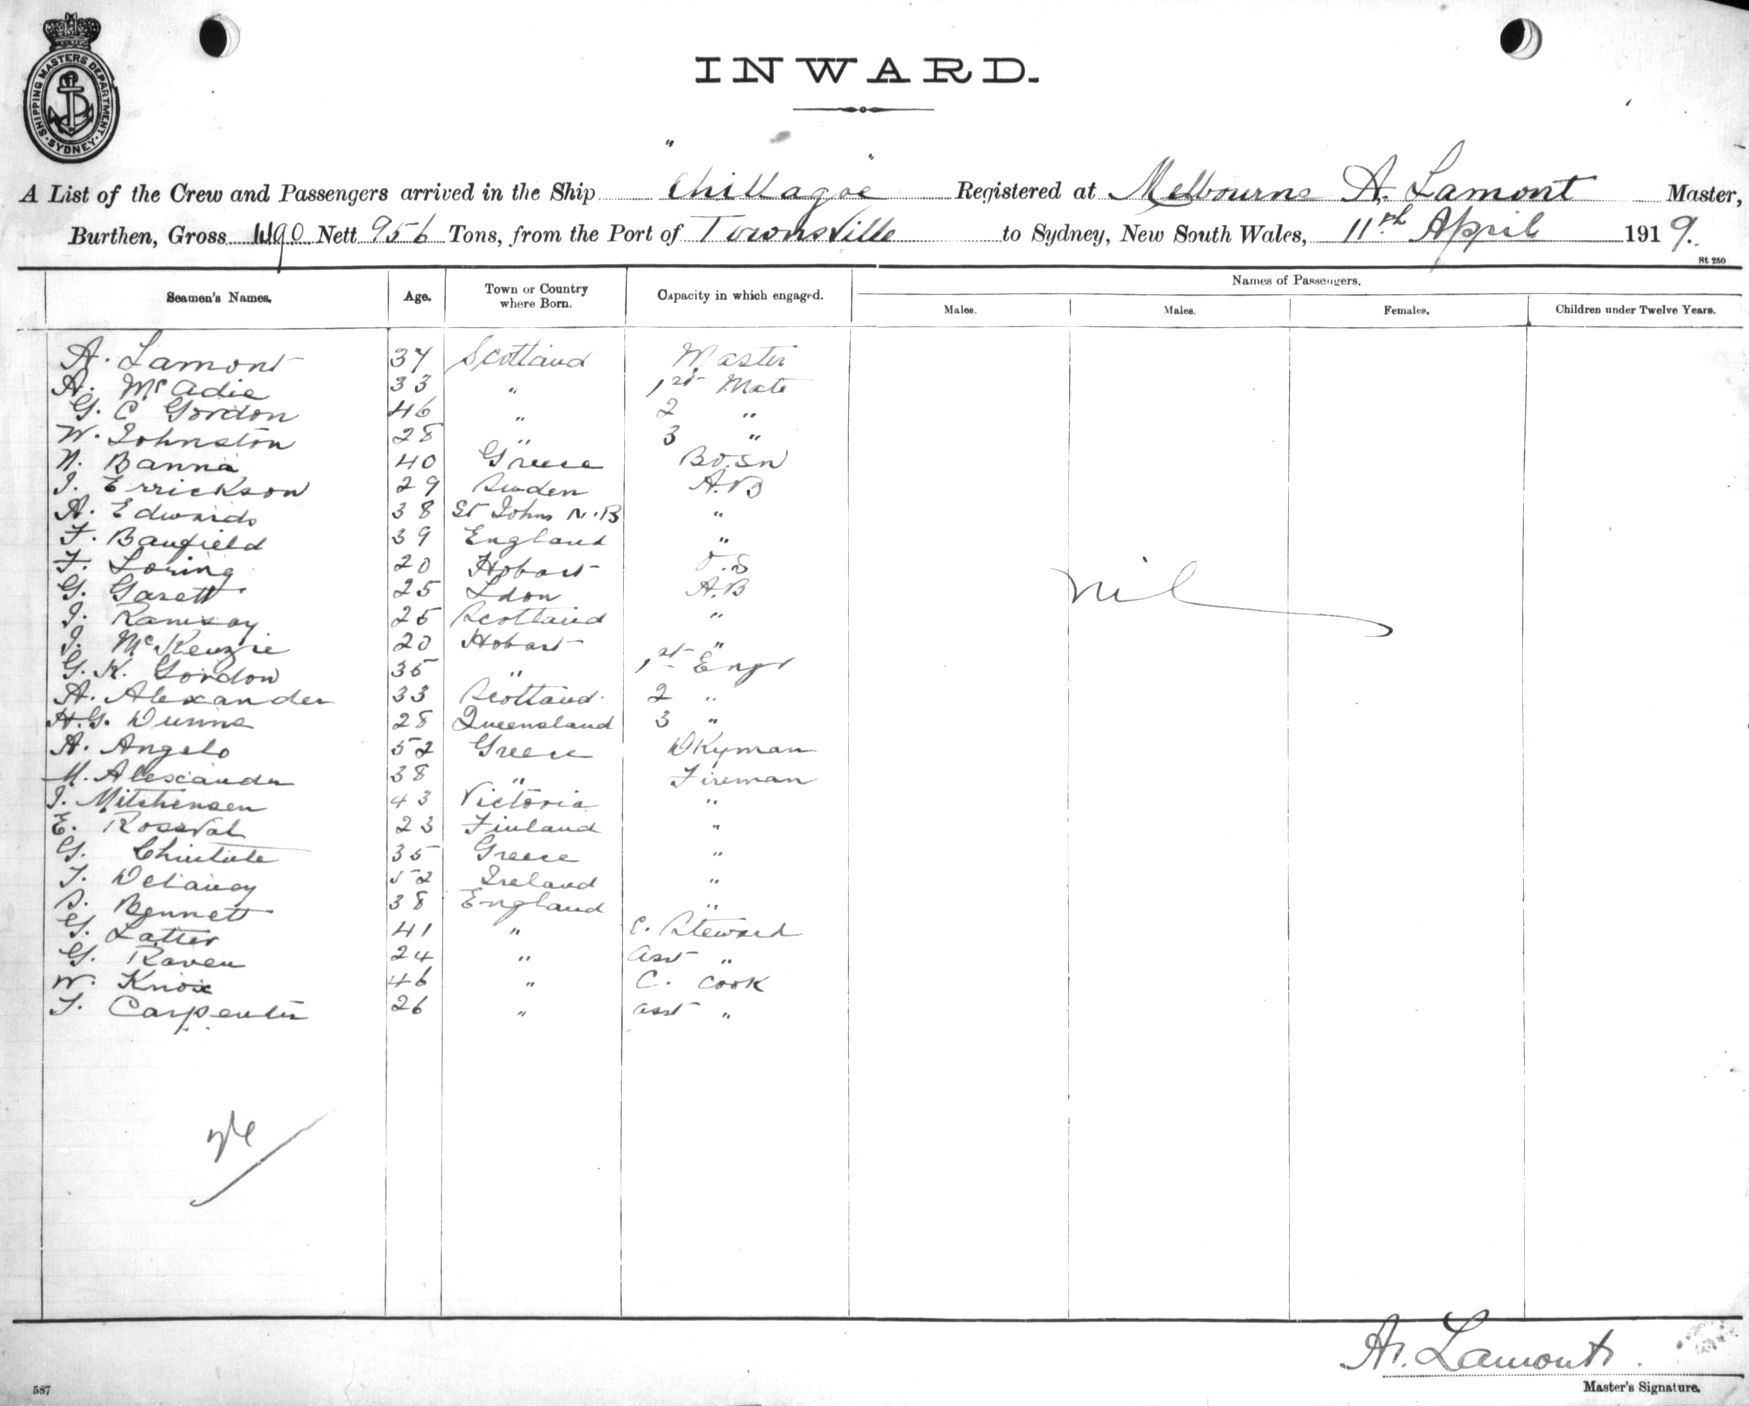 SHIPPING MASTERS DEPARTMENT SYDNEY
INWARD.
A List of the Crew and Passengers arrived in the Ship "Chillagoe" Registered at Melbourne A. Lamont Master,
Burthen, Gross Nett 956 Tons, from the Port of Townsville to Sydney, New South Wales, 11th April 1919.
St 250
Seamen's Names. Age. Town or Country where Born. Capacity in which engaged. Names of Passengers.
Males. Males. Females. Children under Twelve Years.
A. Lamont 37 Scotland Master
A. McAdie 33 " 1st Mate
G. C Gordon 46 " 2 "
W. Johnston 28 " 3 "
N. Banna 40 Greece Bosn
J. Errickson 29 Sweden A.B
A. Edwards 38 St Johns N.B "
F. Banfield 39 England "
F. Loring 20 Hobart O.S
G. Gasett 25 Ldon A.B
J. Ramsay 25 Scotland "
J. McKenzie 20 Hobart "
G. K. Gordon 35 " 1st Engr
A. Alexander 33 Scotland. 2 "
H.G. Dunne 28 Queensland 3 "
A. Angelo 52 Greece Dkyman
M. Alexander 38 " Fireman
J. Mitchensen 43 Victoria "
E. Rossval 23 Finland "
G. 35 Greece "
T. Delaney 52 Ireland "
S. Bennett 38 England "
G. Latter 41 " C. Steward
G. Raven 24 " asst "
W. Knox 46 " C. Cook
T. Carpenter 26 " asst "
nil
A. Lamont.
Master's Signature.
587